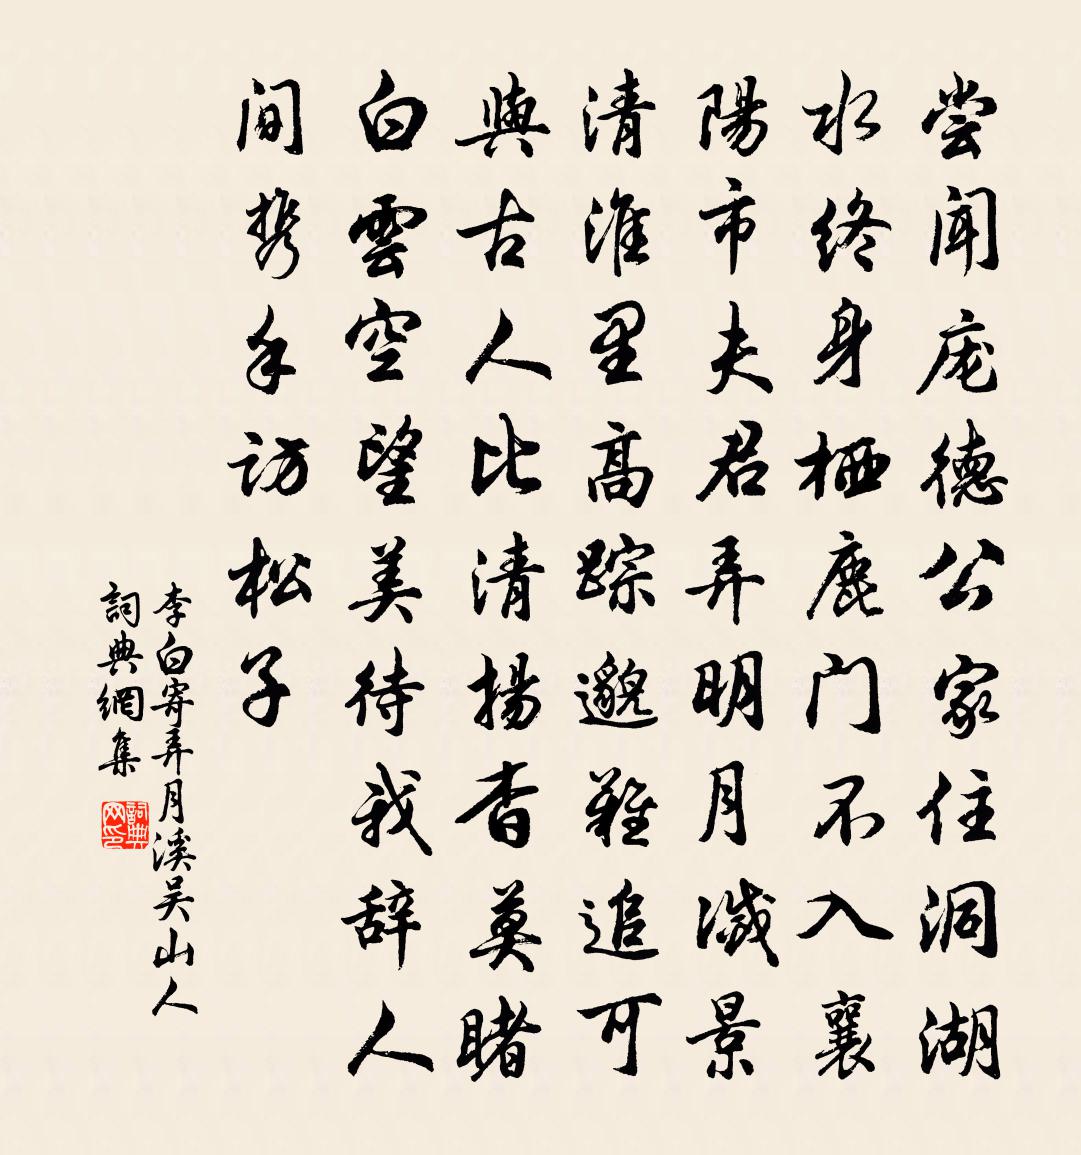 尝闻庞德公家住洞湖
水终身栖鹿门不入襄
陽市夫君弄明月滅景
清淮里高踪邈難追可
與古人比清揚杳莫睹
白雲空望美待我辞人
间携手访松子
李白寄弄月溪吴山人
詞典網集
詞典
网印